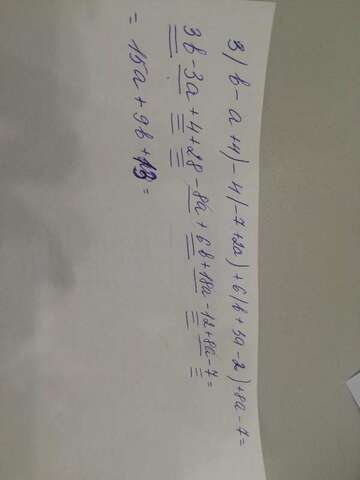 3(b-a+4)-4(-7+2a)+6(b+3a-2)+8a-7=
3b-3a+4+28-8a+6b+18a-12+8a-7=
=15a+9b+13=